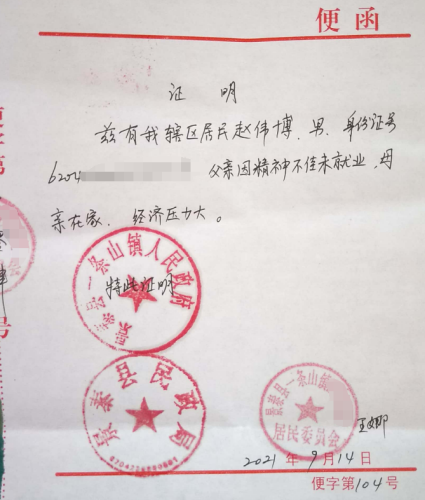 便函
证 明
兹有我辖区居民赵伟博，男，身份证号
6204 父亲因精神不佳未就业，母
亲在家，经济压力大。
特此证明
景泰县一条山镇人民政府
景泰县民政局
景泰县一条山镇
居民委员会
王娜
2021年9月14日
便字第104号